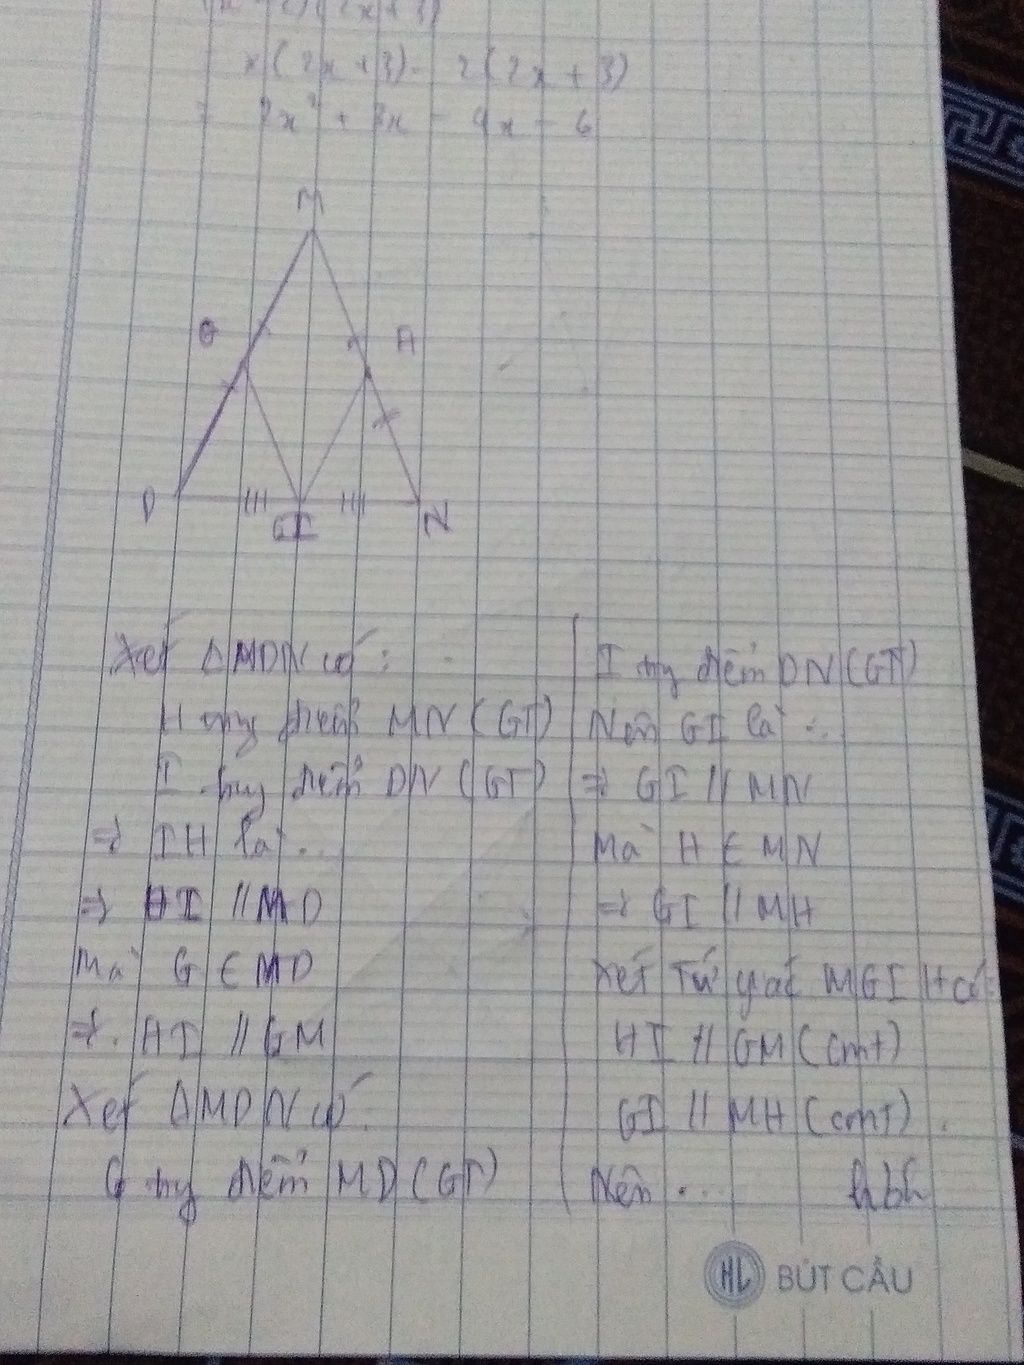 x(2x+3) - 2(2x+3)
= 2x² + 3x - 4x - 6
M
G
H
D
GI
N
Xét ΔMDN có:
H trug điểm MN (GT)
I trug điểm DN (GT)
=> IH là ..
=> HI // MD
Mà G ∈ MD
=> HI // GM
Xét ΔMDN có
G trug điểm MD (GT)
I trug điểm DN (GT)
Nên GI là ...
=> GI // MN
Mà H ∈ MN
=> GI // MH
Xét Tứ giác MGIH có:
HI // GM (cmt)
GI // MH (cmt).
Nên ... hbh
HL BÚT CẦU